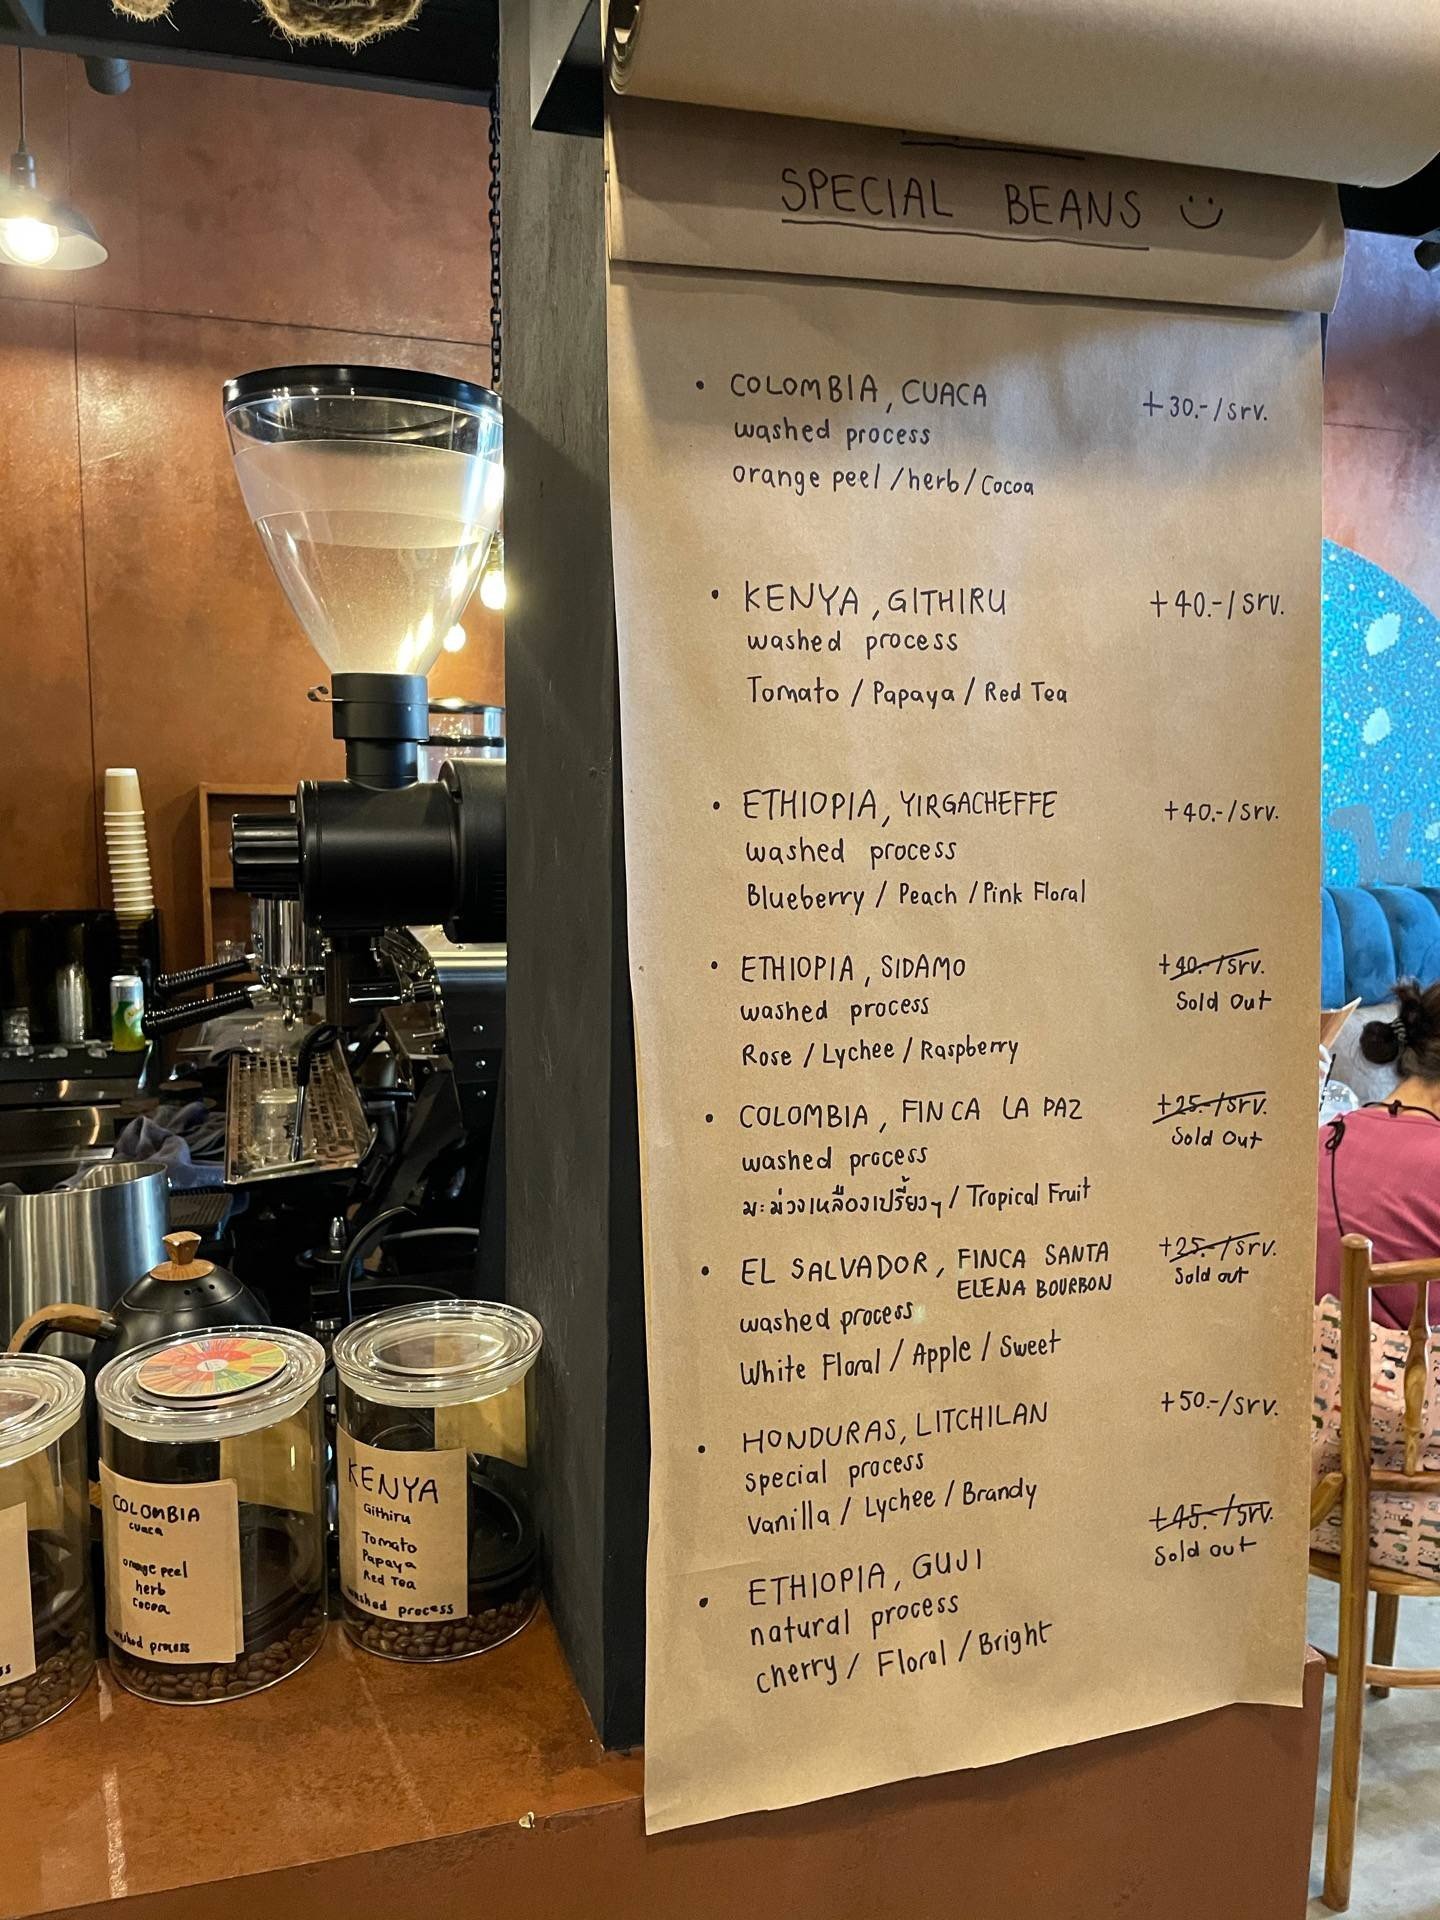 SPECIAL BEANS
• COLOMBIA, CUACA +30.-/srv.
washed process
orange peel / herb / Cocoa
• KENYA, GITHIRU +40.-/srv.
washed process
Tomato / Papaya / Red Tea
• ETHIOPIA, YIRGACHEFFE +40.-/srv.
washed process
Blueberry / Peach / Pink Floral
• ETHIOPIA, SIDAMO +40.-/srv.
washed process Sold Out
Rose / Lychee / Raspberry
• COLOMBIA, FINCA LA PAZ +25.-/srv.
washed process Sold Out
มะม่วงเหลืองเปรี้ยวๆ / Tropical Fruit
• EL SALVADOR, FINCA SANTA +25.-/srv.
ELENA BOURBON Sold out
washed process
White Floral / Apple / Sweet
• HONDURAS, LITCHILAN +50.-/srv.
special process
Vanilla / Lychee / Brandy
• ETHIOPIA, GUJI +45.-/srv.
natural process Sold out
cherry / Floral / Bright
COLOMBIA
cuaca
orange peel
herb
cocoa
washed process
KENYA
Githiru
Tomato
Papaya
Red Tea
washed process